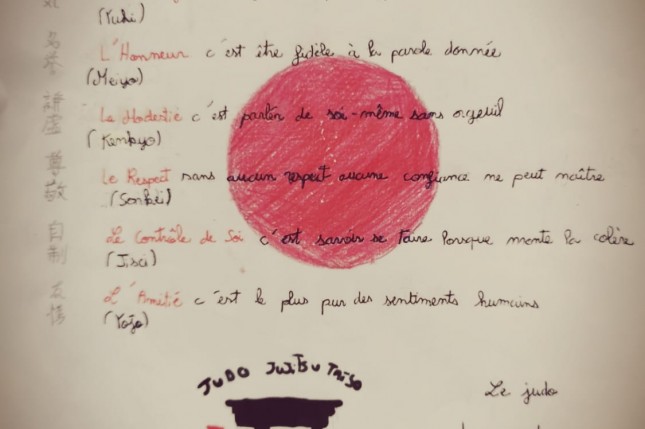 (Yuki)
L'Honneur c'est être fidèle à la parole donnée
(Meiyo)
La Modestie c'est parler de soi-même sans orgeuil
(Kenkyo)
Le Respect sans aucun respect aucune confiance ne peut naître
(Sonkei)
Le Contrôle de Soi c'est savoir se taire lorsque monte la colère
(Jisei)
L'Amitié c'est le plus pur des sentiments humains
(Yojo)
名誉
謙虚
尊敬
自制
友情
JUDO JUJITSU TAISO
Le judo